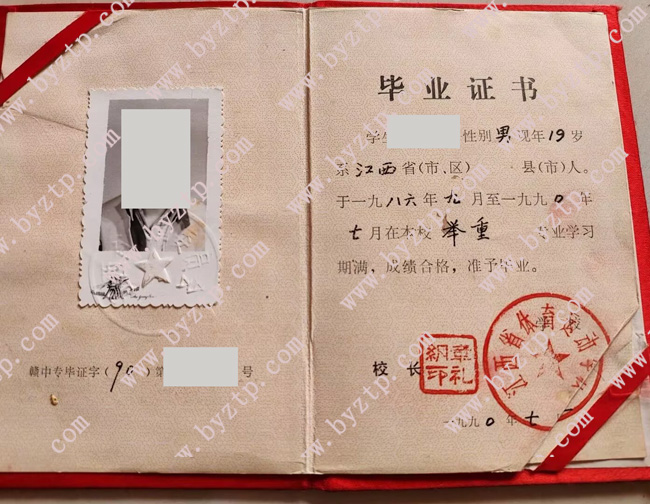 赣中专毕证字(90)第 号
毕业证书
学生 性别男现年19岁
系江西省(市、区) 县(市)人。
于一九八六年九月至一九九〇年
七月在本校 举重 专业学习
期满，成绩合格，准予毕业。
校长
江西省体育运动学校
一九九〇年七
www.byztp.com